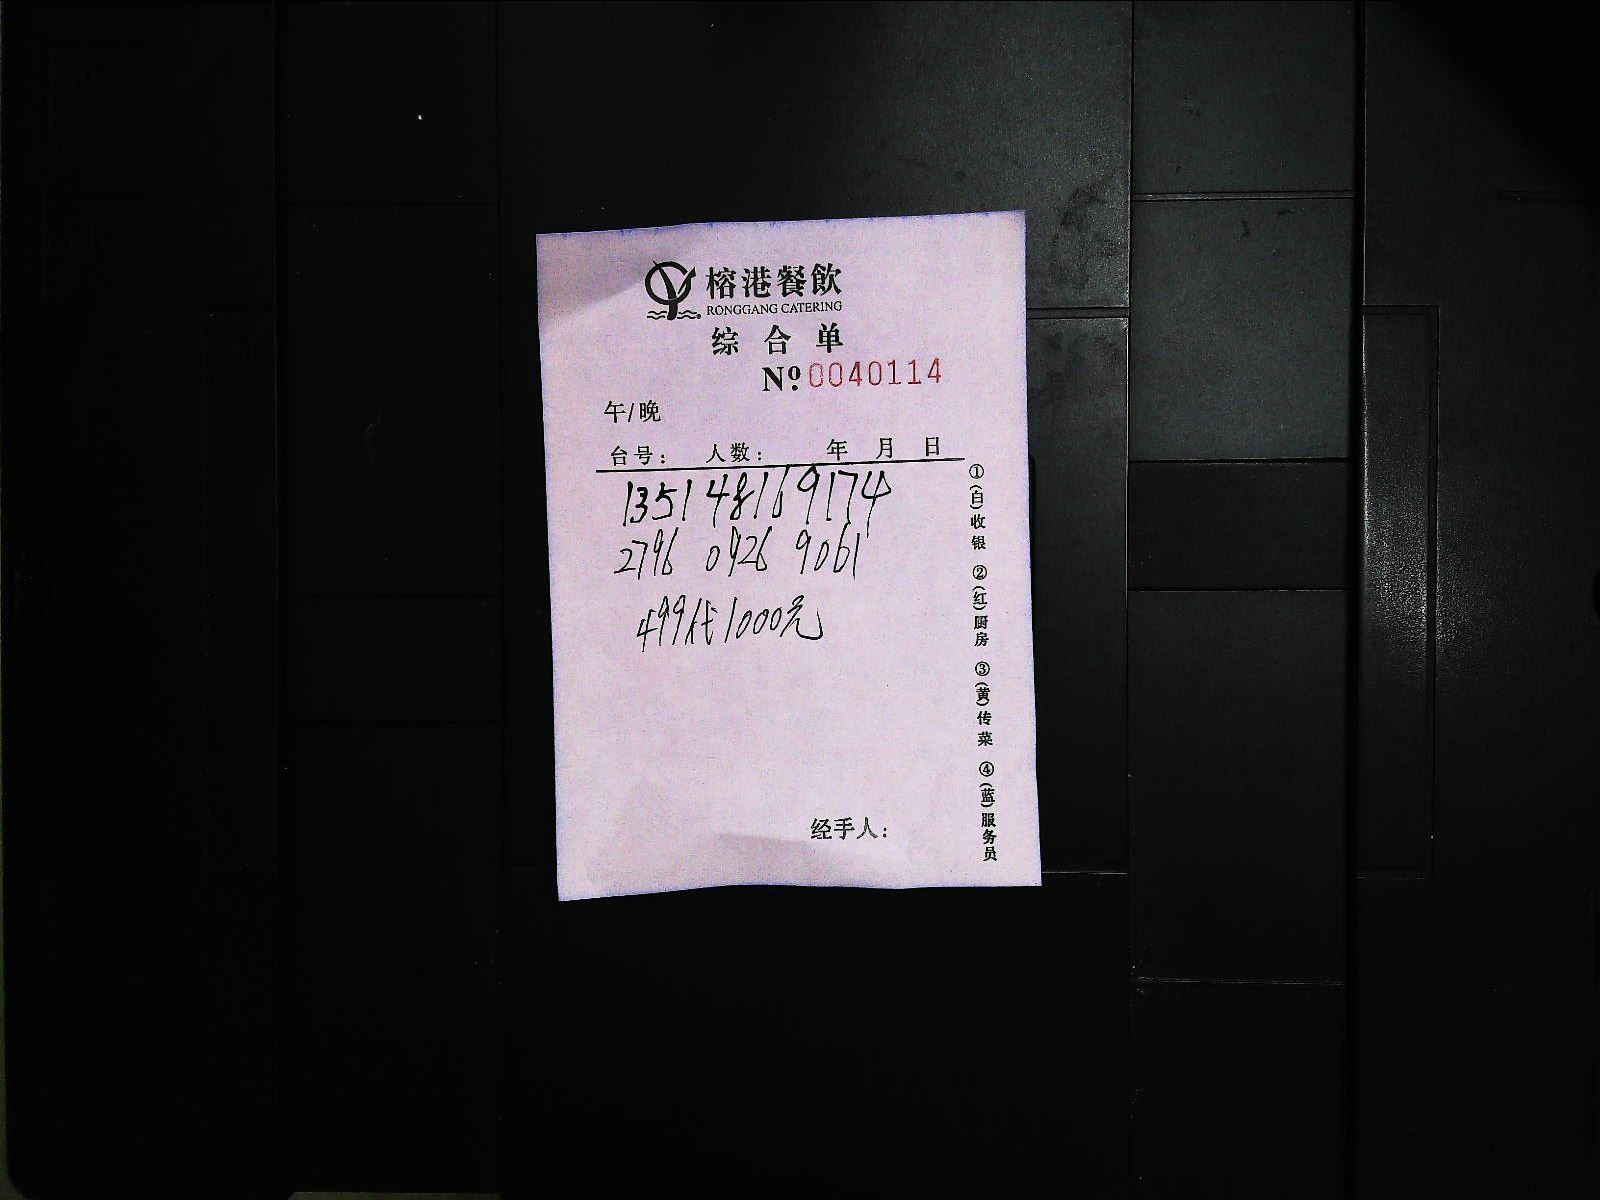 榕港餐飲
RONGGANG CATERING
综合单
Nº:0040114
午/晚
台号: 人数: 年 月 日
1351 4816 9174
2796 0926 9061
499代1000元
经手人:
①(白)收银 ②(红)厨房 ③(黄)传菜 ④(蓝)服务员